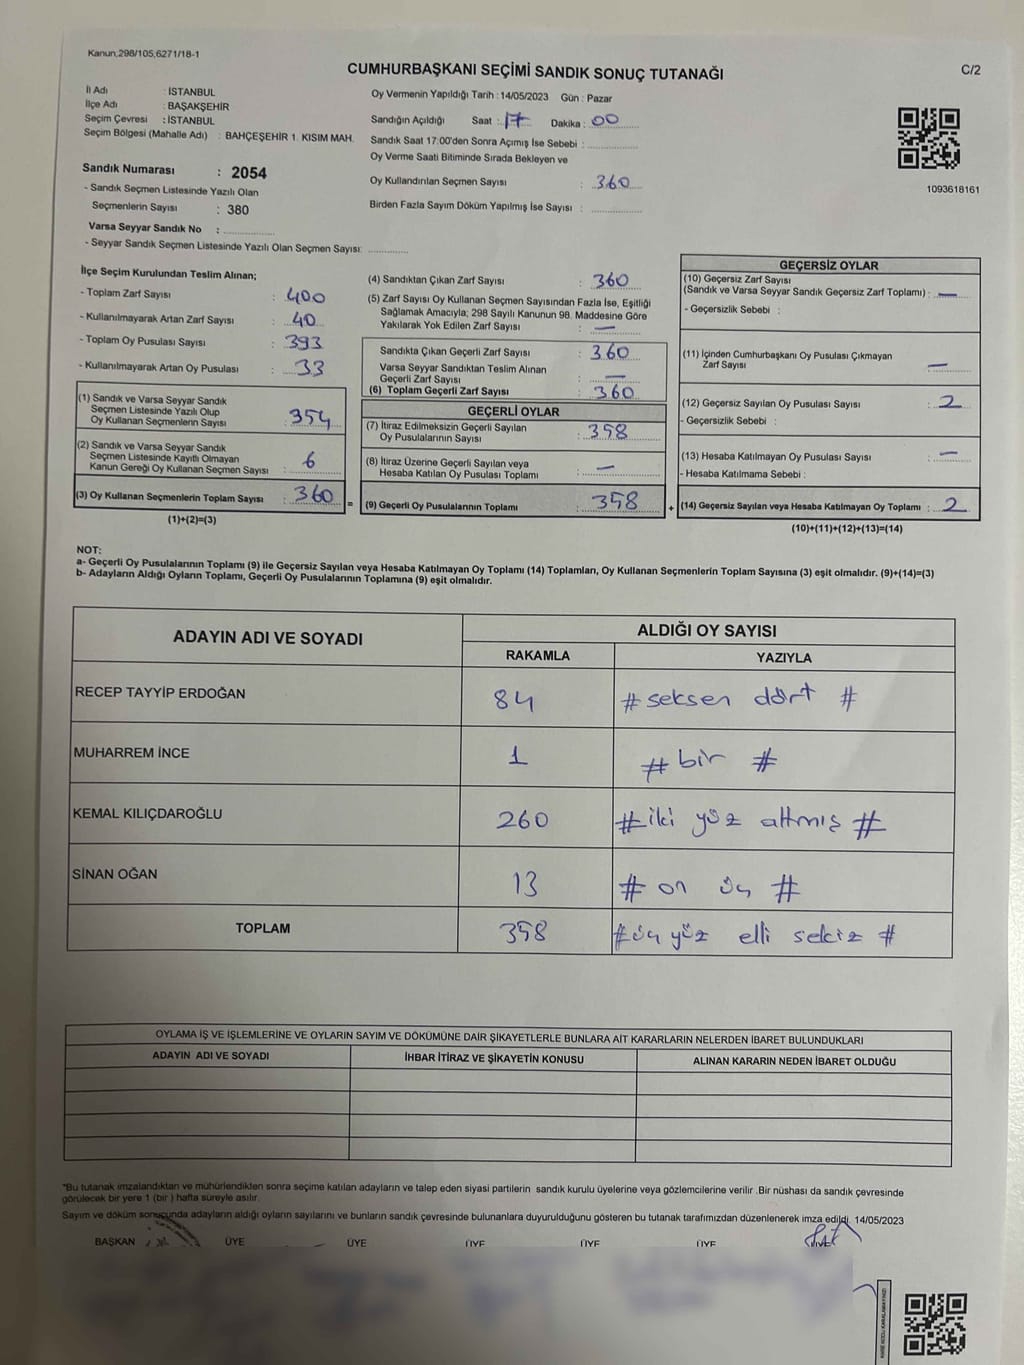 Kanun;298/105,6271/18-1
CUMHURBAŞKANI SEÇİMİ SANDIK SONUÇ TUTANAĞI
C/2
İl Adı : İSTANBUL
İlçe Adı : BAŞAKŞEHİR
Seçim Çevresi : İSTANBUL
Seçim Bölgesi (Mahalle Adı) : BAHÇEŞEHİR 1. KISIM MAH.
Oy Vermenin Yapıldığı Tarih : 14/05/2023 Gün : Pazar
Sandığın Açıldığı Saat : 17 Dakika : 00
Sandık Saat 17:00'den Sonra Açımış İse Sebebi :
Oy Verme Saati Bitiminde Sırada Bekleyen ve
Oy Kullandırılan Seçmen Sayısı : 360
Birden Fazla Sayım Döküm Yapılmış İse Sayısı :
1093618161
Sandık Numarası : 2054
- Sandık Seçmen Listesinde Yazılı Olan
Seçmenlerin Sayısı : 380
Varsa Seyyar Sandık No :
- Seyyar Sandık Seçmen Listesinde Yazılı Olan Seçmen Sayısı:
İlçe Seçim Kurulundan Teslim Alınan;
- Toplam Zarf Sayısı : 400
- Kullanılmayarak Artan Zarf Sayısı : 40
- Toplam Oy Pusulası Sayısı : 393
- Kullanılmayarak Artan Oy Pusulası : 33
(1) Sandık ve Varsa Seyyar Sandık
Seçmen Listesinde Yazılı Olup
Oy Kullanan Seçmenlerin Sayısı : 354
(2) Sandık ve Varsa Seyyar Sandık
Seçmen Listesinde Kayıtlı Olmayan
Kanun Gereği Oy Kullanan Seçmen Sayısı : 6
(3) Oy Kullanan Seçmenlerin Toplam Sayısı : 360 =
(1)+(2)=(3)
(4) Sandıktan Çıkan Zarf Sayısı : 360
(5) Zarf Sayısı Oy Kullanan Seçmen Sayısından Fazla İse, Eşitliği
Sağlamak Amacıyla; 298 Sayılı Kanunun 98. Maddesine Göre
Yakılarak Yok Edilen Zarf Sayısı : —
Sandıkta Çıkan Geçerli Zarf Sayısı : 360
Varsa Seyyar Sandıktan Teslim Alınan
Geçerli Zarf Sayısı : —
(6) Toplam Geçerli Zarf Sayısı : 360
GEÇERLİ OYLAR
(7) İtiraz Edilmeksizin Geçerli Sayılan
Oy Pusulalarının Sayısı : 358
(8) İtiraz Üzerine Geçerli Sayılan veya
Hesaba Katılan Oy Pusulası Toplamı : —
(9) Geçerli Oy Pusulalarının Toplamı : 358 +
GEÇERSİZ OYLAR
(10) Geçersiz Zarf Sayısı
(Sandık ve Varsa Seyyar Sandık Geçersiz Zarf Toplamı) : —
- Geçersizlik Sebebi :
(11) İçinden Cumhurbaşkanı Oy Pusulası Çıkmayan
Zarf Sayısı : —
(12) Geçersiz Sayılan Oy Pusulası Sayısı : 2
- Geçersizlik Sebebi :
(13) Hesaba Katılmayan Oy Pusulası Sayısı : —
- Hesaba Katılmama Sebebi :
(14) Geçersiz Sayılan veya Hesaba Katılmayan Oy Toplamı : 2
(10)+(11)+(12)+(13)=(14)
NOT:
a- Geçerli Oy Pusulalarının Toplamı (9) ile Geçersiz Sayılan veya Hesaba Katılmayan Oy Toplamı (14) Toplamları, Oy Kullanan Seçmenlerin Toplam Sayısına (3) eşit olmalıdır. (9)+(14)=(3)
b- Adayların Aldığı Oyların Toplamı, Geçerli Oy Pusulalarının Toplamına (9) eşit olmalıdır.
ADAYIN ADI VE SOYADI
ALDIĞI OY SAYISI
RAKAMLA YAZIYLA
RECEP TAYYİP ERDOĞAN 84 # seksen dört #
MUHARREM İNCE 1 # bir #
KEMAL KILIÇDAROĞLU 260 # iki yüz altmış #
SİNAN OĞAN 13 # on üç #
TOPLAM 358 # üç yüz elli sekiz #
OYLAMA İŞ VE İŞLEMLERİNE VE OYLARIN SAYIM VE DÖKÜMÜNE DAİR ŞİKAYETLERLE BUNLARA AİT KARARLARIN NELERDEN İBARET BULUNDUKLARI
ADAYIN ADI VE SOYADI İHBAR İTİRAZ VE ŞİKAYETİN KONUSU ALINAN KARARIN NEDEN İBARET OLDUĞU
*Bu tutanak imzalandıktan ve mühürlendikten sonra seçime katılan adayların ve talep eden siyasi partilerin sandık kurulu üyelerine veya gözlemcilerine verilir .Bir nüshası da sandık çevresinde
görülecek bir yere 1 (bir ) hafta süreyle asılır.
Sayım ve döküm sonucunda adayların aldığı oyların sayılarını ve bunların sandık çevresinde bulunanlara duyurulduğunu gösteren bu tutanak tarafımızdan düzenlenerek imza edildi. 14/05/2023
BAŞKAN ÜYE ÜYE ÜYE ÜYE ÜYE